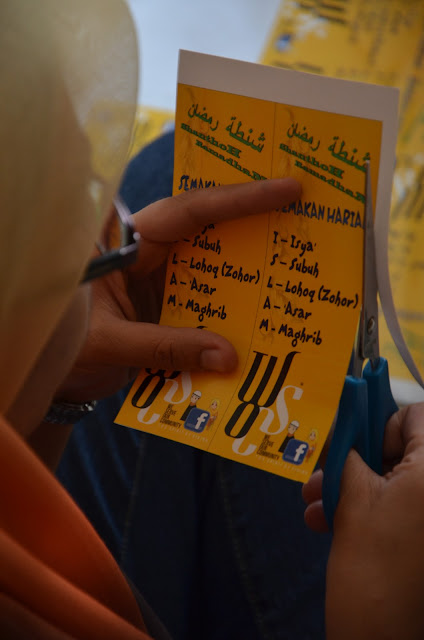 شنطة رمضان
Shantboh
Ramadhan
SEMAKAN
Isya'
S – Subuh
L – Lohoq (Zohor)
A – Asar
M – Maghrib
شنطة رمضان
Shantboh
Ramadhan
SEMAKAN HARIA
I – Isya'
S – Subuh
L – Lohoq (Zohor)
A – Asar
M – Maghrib
COMMUNITY
f
COMMUNITY
f